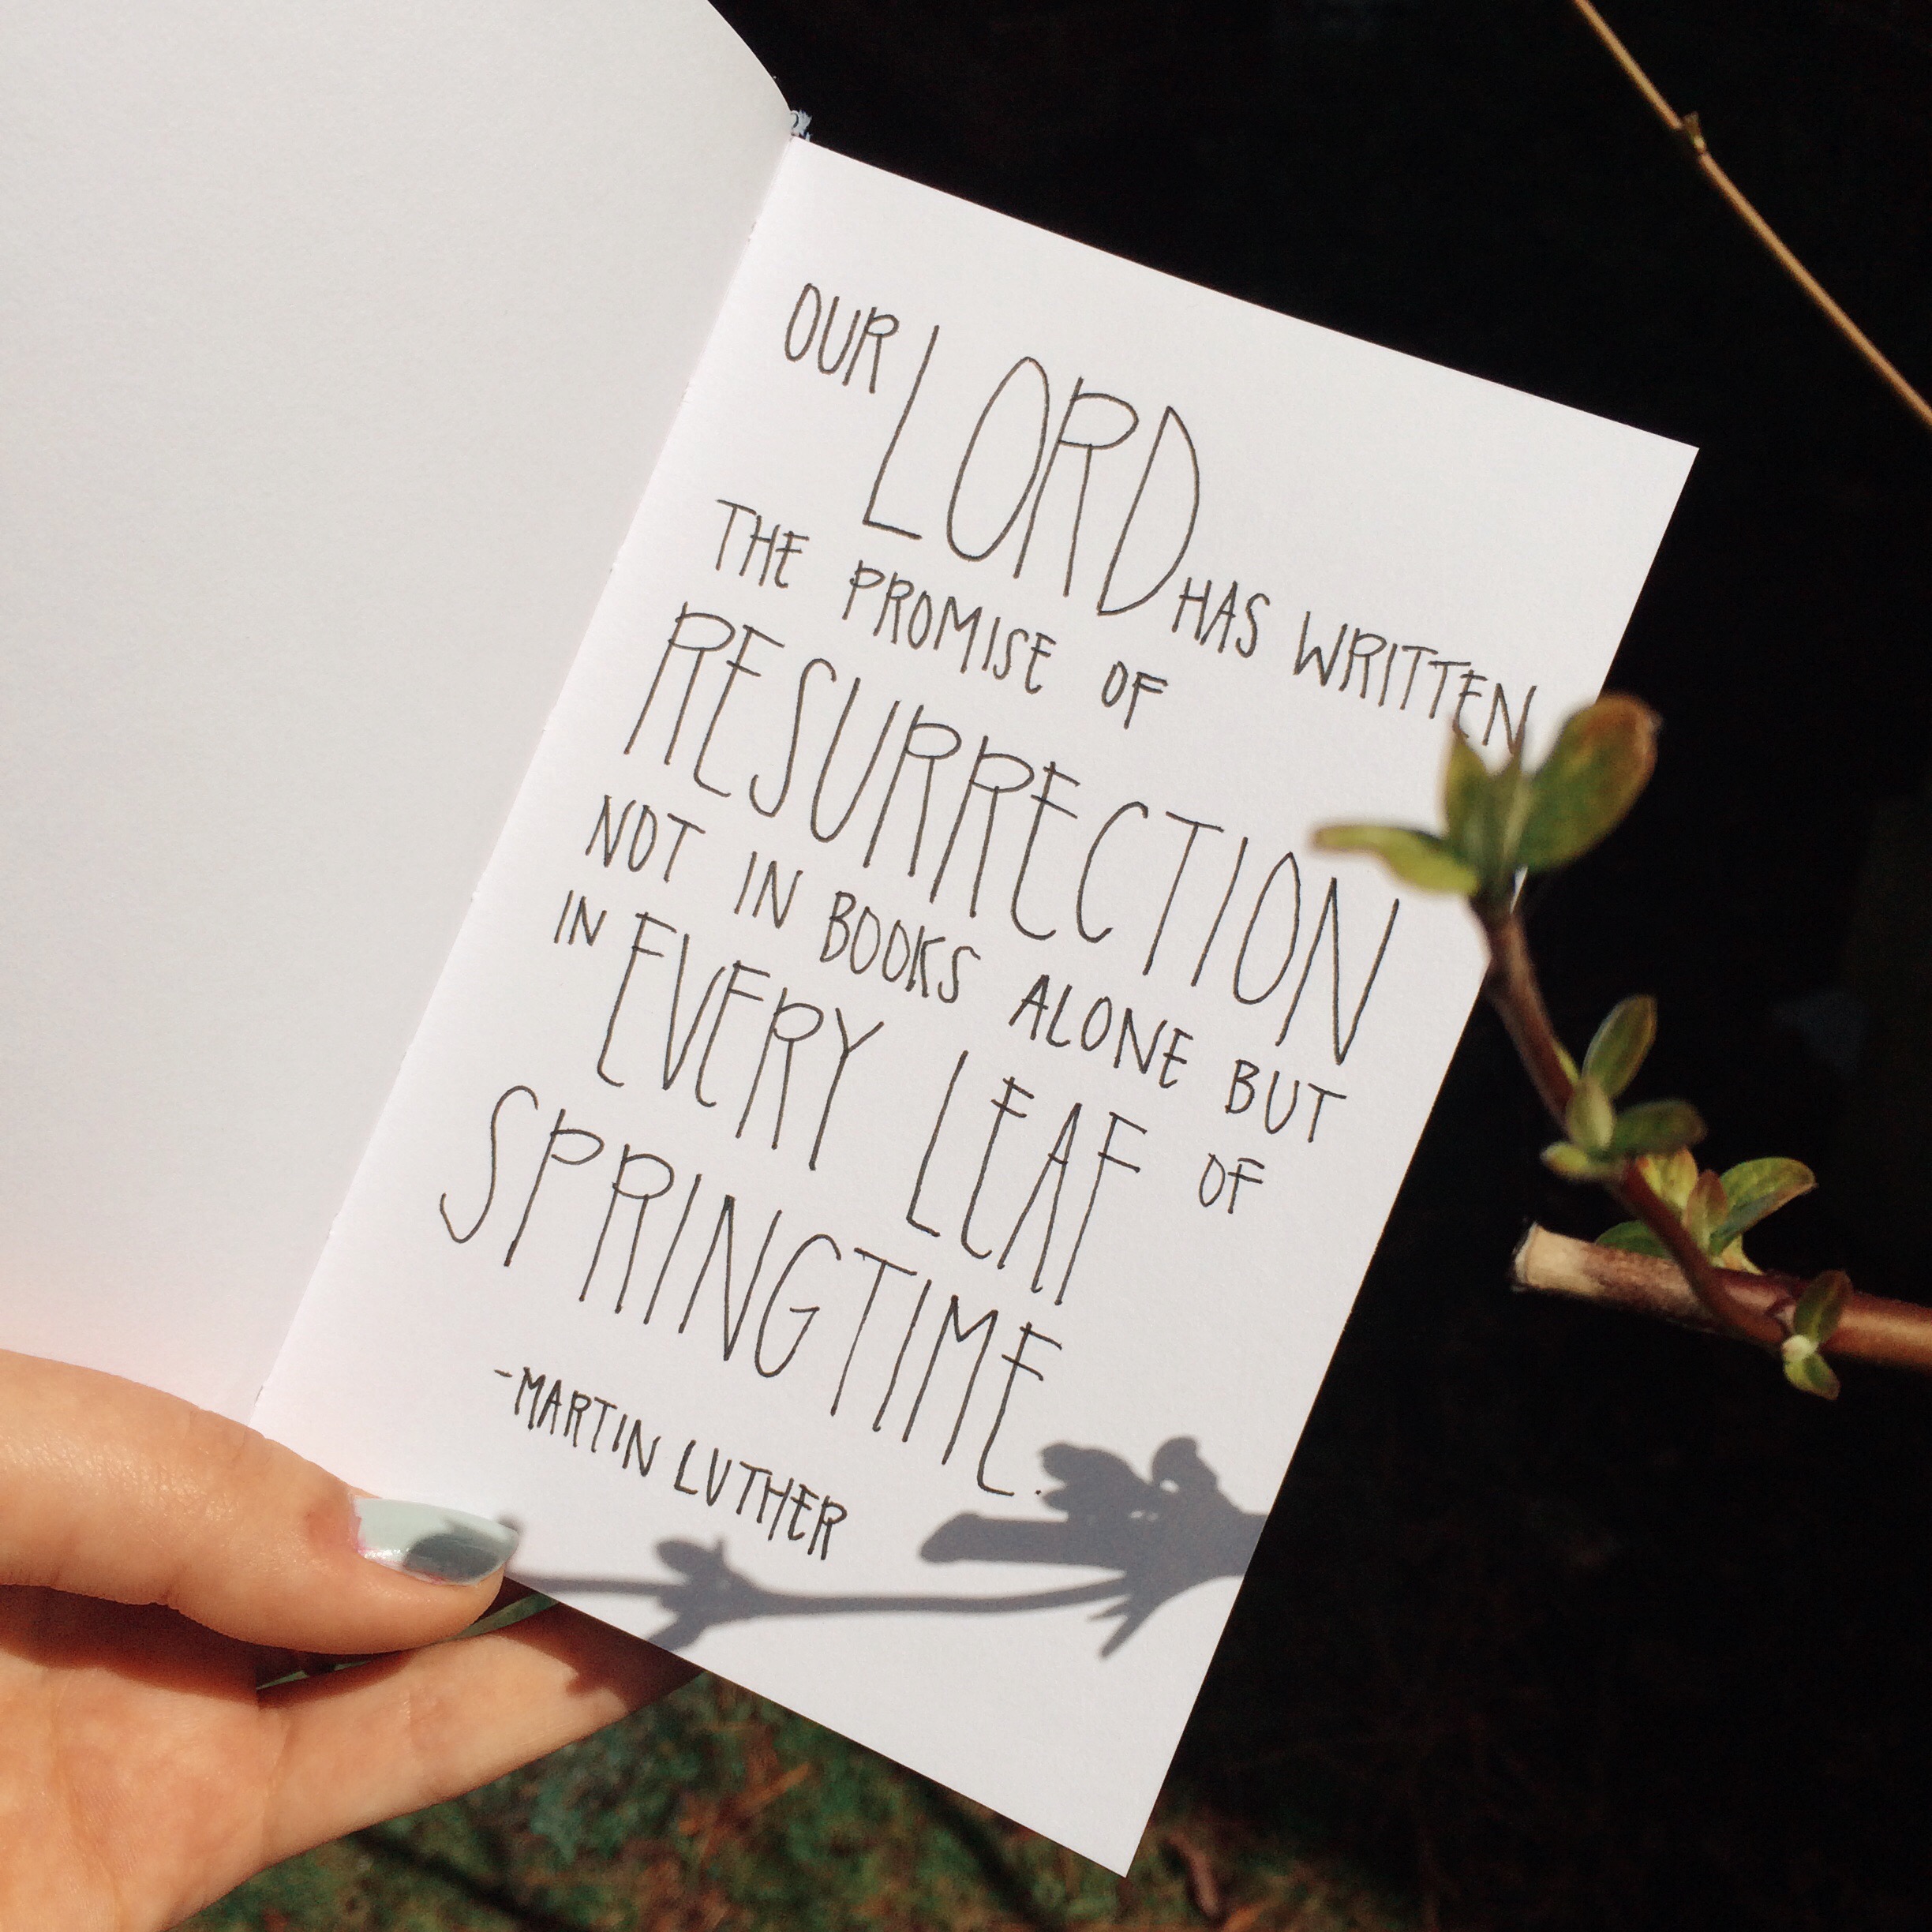 OUR LORD HAS WRITTEN
THE PROMISE OF
RESURRECTION
NOT IN BOOKS ALONE BUT
IN EVERY LEAF OF
SPRINGTIME.
-MARTIN LUTHER